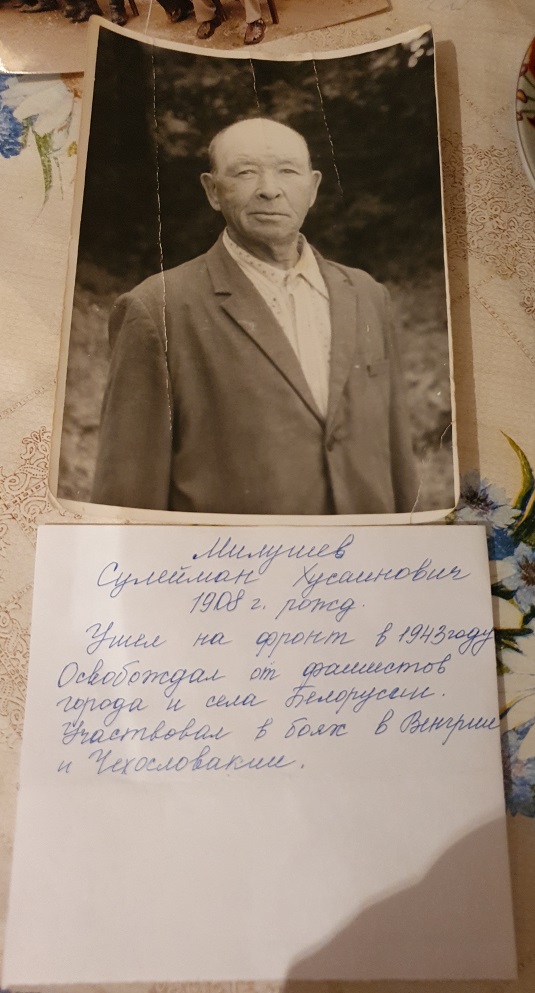 Милушев
Сулейман Хусаинович
1908 г. рожд.
Ушел на фронт в 1943 году
Освобождал от фашистов
города и села Белорусии.
Участвовал в боях в Венгрии
и Чехословакии.